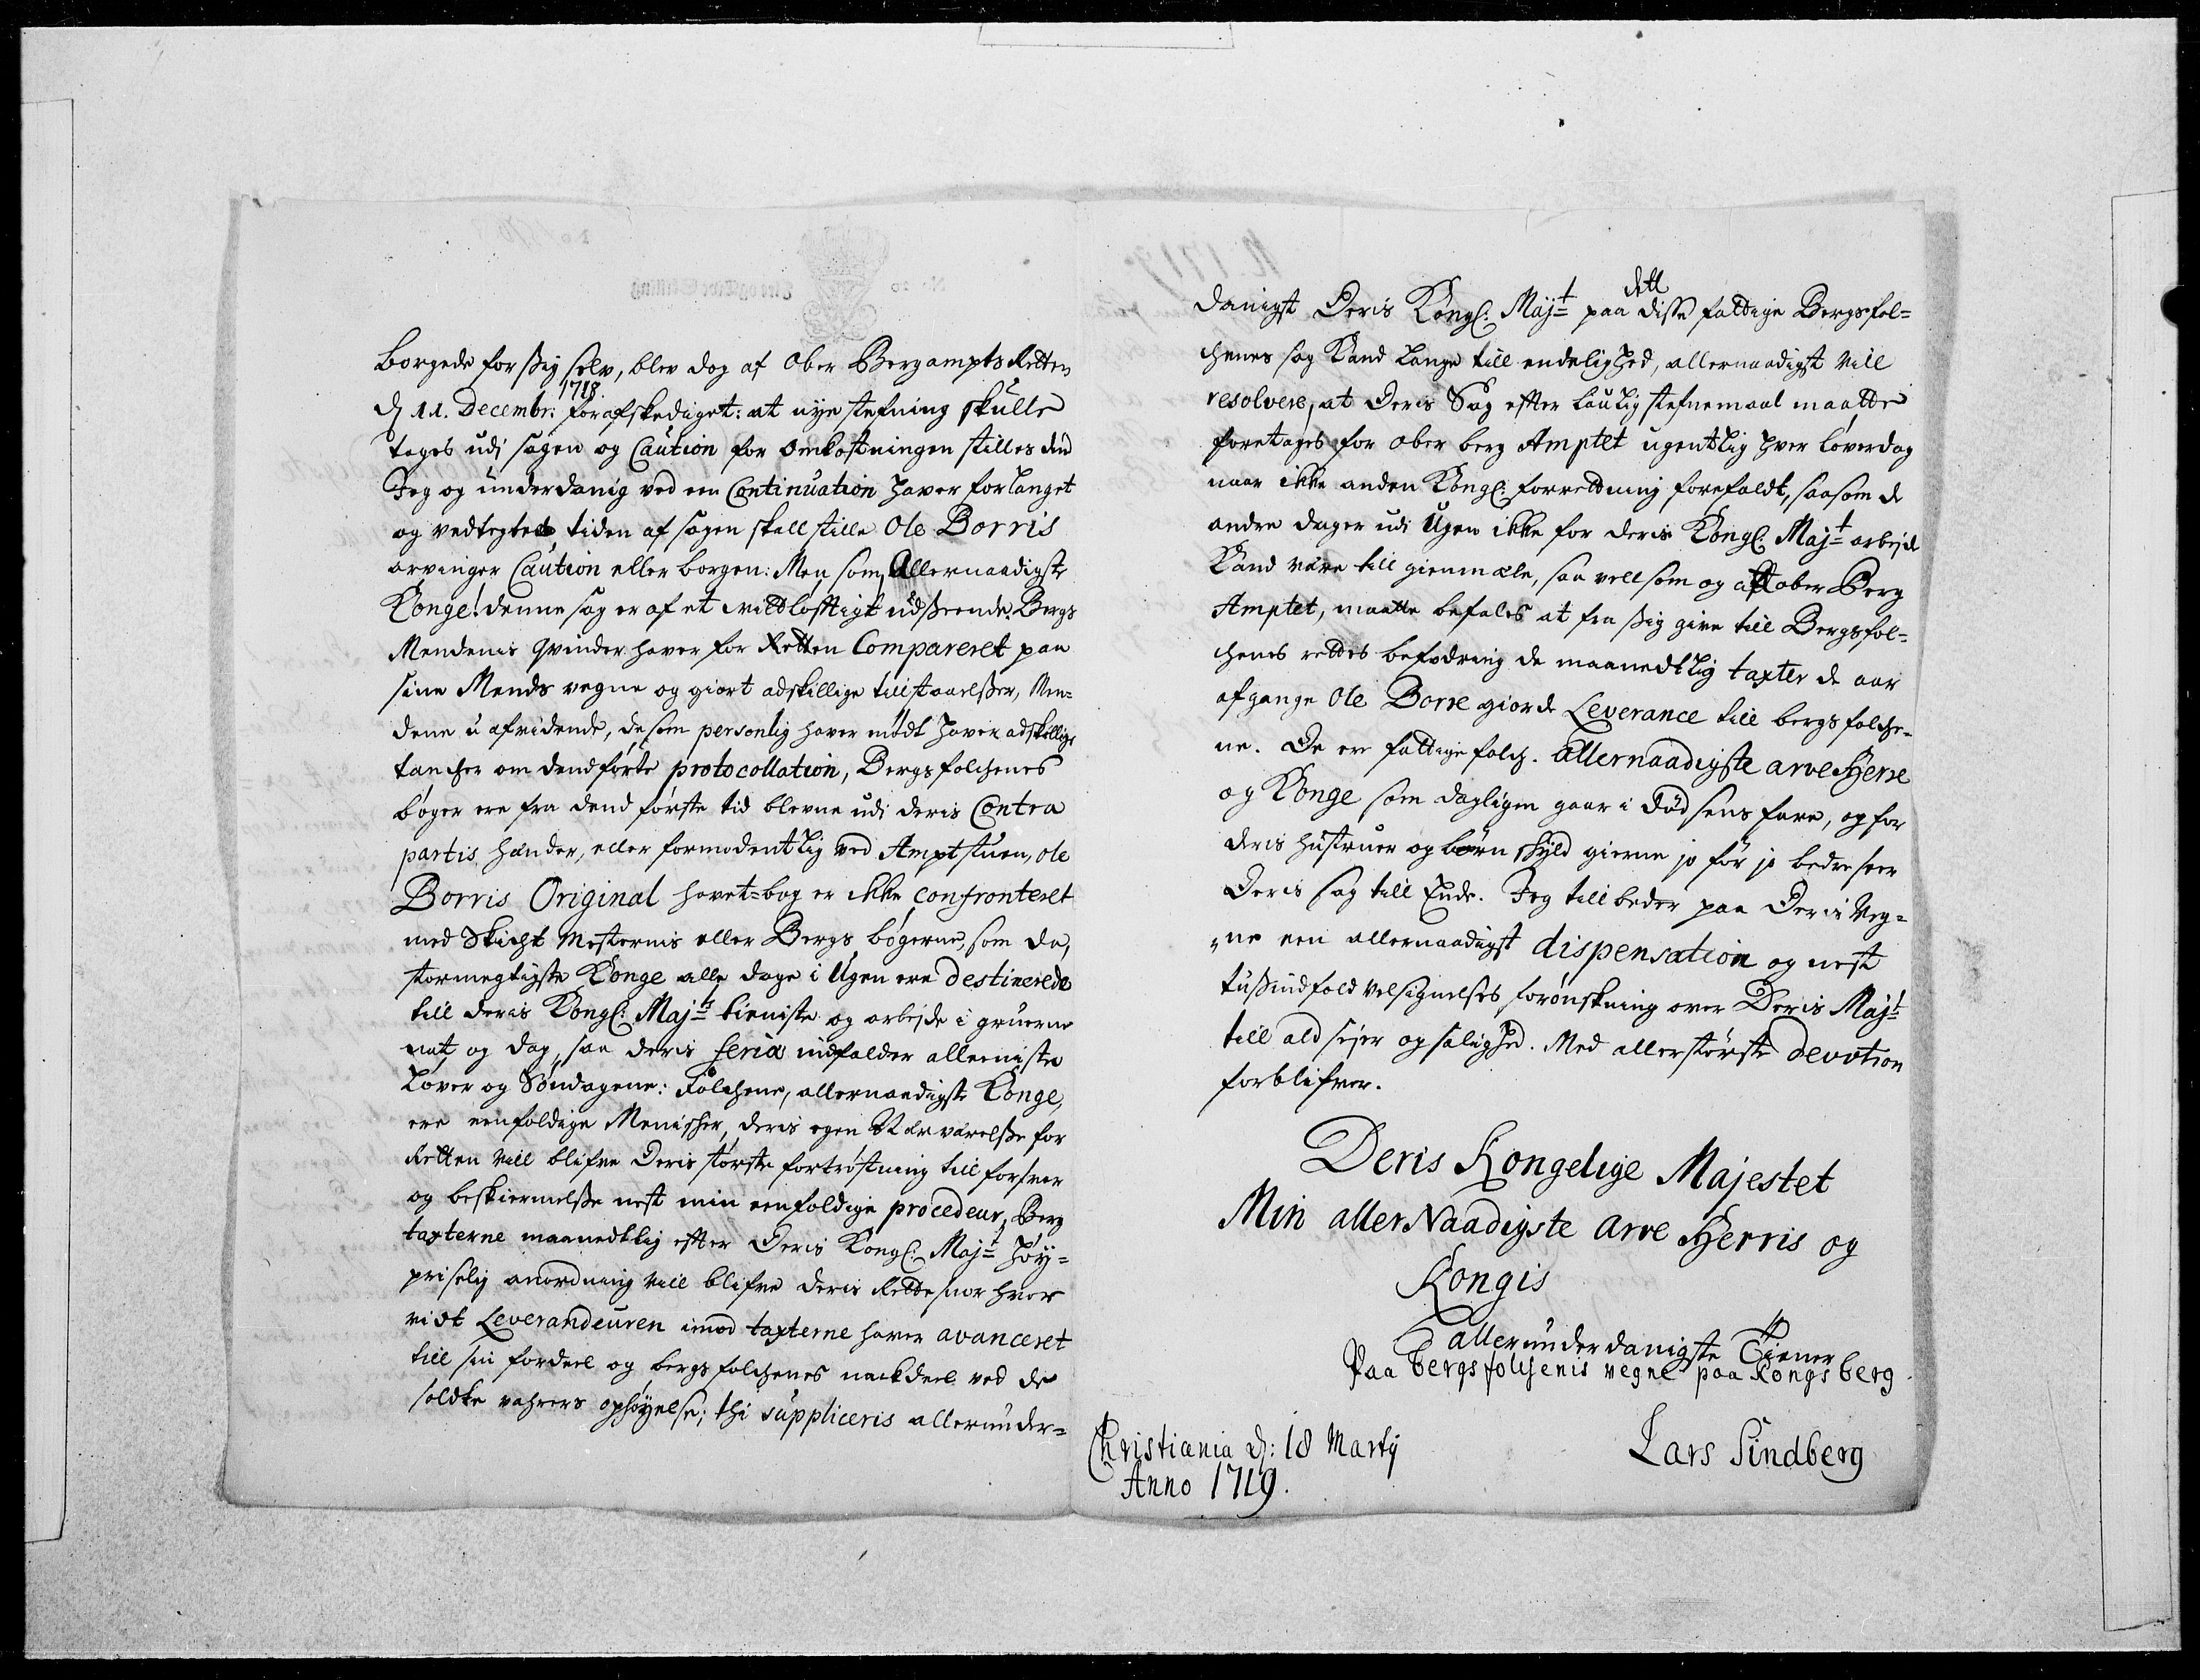 borgede for sig selv, blev dog af Ober Bergampts Retten
d 11. Decembr: 1718. forafskediget: at nye stefning skulle
tages udj sagen og Caution for omkostningen stilles dend
Jeg og underdanig ved een Continuation haver forlanget
og vedtegted, tiden af sagen skall stille Ole Borris
arvinger Caution eller borgen: Men som, Allernaadigste
Konge! denne sag er af et vitløfftigt udseende. Bergs
Mendenis qvinder haver for Retten Compareret paa
sine Mends vegne og giort adskillige tillstaaelser, Men=
dene u afvidende, de som personlig haver mødt haver adskillige
tancher om dend førte protocollation, Bergsfolchenes
bøger ere fra dend første tid blevne udj deris Contra
partis hænder, eller formodentlig ved Amptstuen, Ole
Borris Original hovet=bog er ikke confronteret
med Skicht Mesternis eller Bergs bøgerne, som da,
stormegtigste Konge alle dage i Ugen ere destinerede
till deris Kongl: Majts tieniste og arbejde i gruerne
nat og dag, saa deris feriæ indfalder alleeniste
Løver og Søndagene: Folchene, allernaadigste Konge,
ere eenfoldige Menisher, deris egen Nærværelse for
Retten vill blifve Deris største fortrøstning till forsvar
og beskiermelse nest min eenfoldige procedeur, Berg
taxterne maanedtlig efter Deris Kongl: Majt høy=
priselig anordning vill blifve deris Rettesnor hvor
vidt Leverandeuren imod taxterne haver avanceret
till sin fordeel og bergsfolchenes nackdeel ved de
soldte vahrers ophøyelse; thi suppliceris allerunder=
danigst Deris Kongl: Majt paa dett disse fattige Bergsfol=
chenes sag Kand lange till endelighed, allernaadigst vill
resolvere, at Deris Sag efter laulig stefnemaal maatte
foretages for ober berg Amptet ugentlig hver løverdag
naar ikke anden Kongl: forretning forefaldt, saasom de
andre dager udi Ugen ikke for deris Kongl Majt arbejde
Kand være till giennæle, saa vell som og att ober Berg
Amptet, maatte befales at fra sig give till Bergsfol=
chenes rettes befodring de maanedtlig taxter de aar
afgange Ole Borre giorde Leverance till bergsfolche=
ne. De ere fattige folch. Allernaadigste arve Herre
og Konge som dagligen gaar i Dødsens fare, og for
deris hustruer og børn skyld gierne jo før jo bedre seer
Deris sag till Ende. Jeg tillbeder paa Deris Veg=
ne een allernaadigst dispensation og nest
tusindfold velsignelses forønskning over Deris Majt
till ald sejer og salighed. Med allerstørste devotion
forblifver.
Deris Kongelige Majestet
Min aller Naadigste Arve Herris og
Kongis
allerunderdanigste Tiener
Paa bergsfolchenis vegne paa Kongsberg.
Christiania d: 18 Martij
Lars Lindberg
Anno 1719.